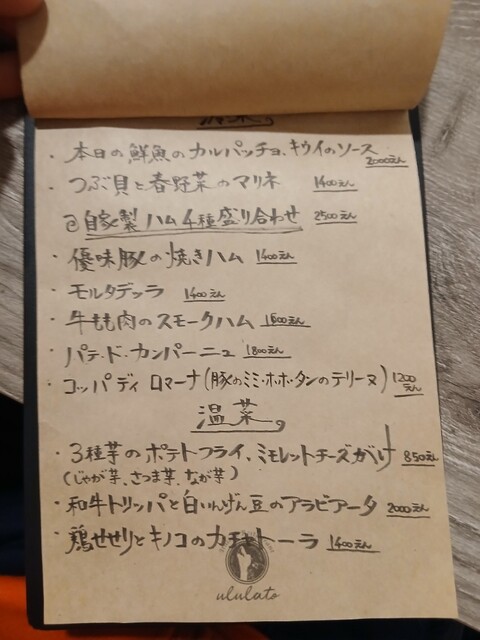 ・本日の鮮魚のカルパッチョ、キウイのソース 2000えん
・つぶ貝と春野菜のマリネ 1400えん
自家製ハム4種盛り合わせ 2500えん
・優味豚の焼きハム 1400えん
・モルタデッラ 1400えん
・牛もも肉のスモークハム 1800えん
・パテ・ド・カンパーニュ 1800えん
・コッパ ディ ロマーナ(豚のミミ・ホホ・タンのテリーヌ) 1200えん
温菜。
・3種芋のポテトフライ、ミモレットチーズがけ 850えん
(じゃが芋、さつま芋、なが芋)
・和牛トリッパと白いんげん豆のアラビアータ 2000えん
・鶏せせりとキノコのカチャトーラ 1400えん
ululato